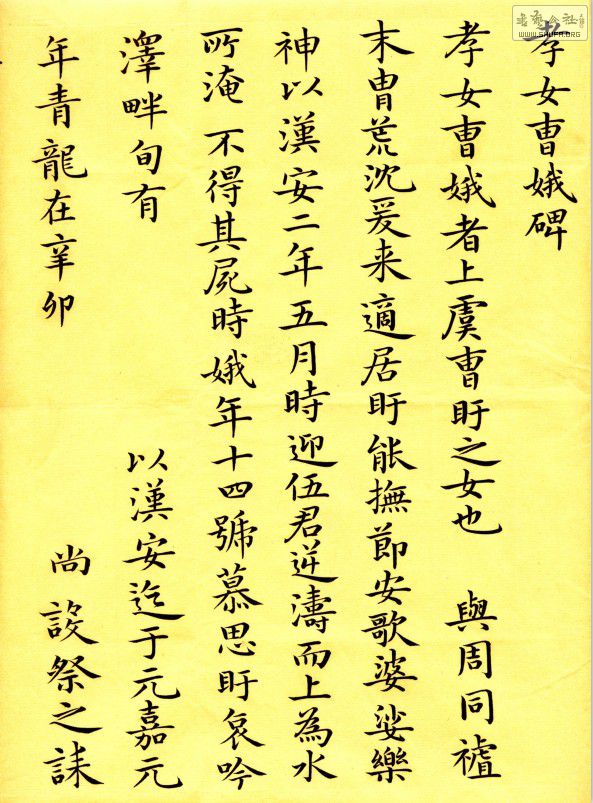 孝女曺娥碑
孝女曺娥者上虞曺盱之女也 與周同禇
末胄荒沈爰来適居盱能撫節安歌婆娑樂
神以漢安二年五月時迎伍君逆濤而上為水
所淹 不得其屍時娥年十四號慕思盱哀吟
澤畔旬有 以漢安迄于元嘉元
年青龍在辛卯 尚設祭之誄
書藝公社
WWW.SHUFA.ORG